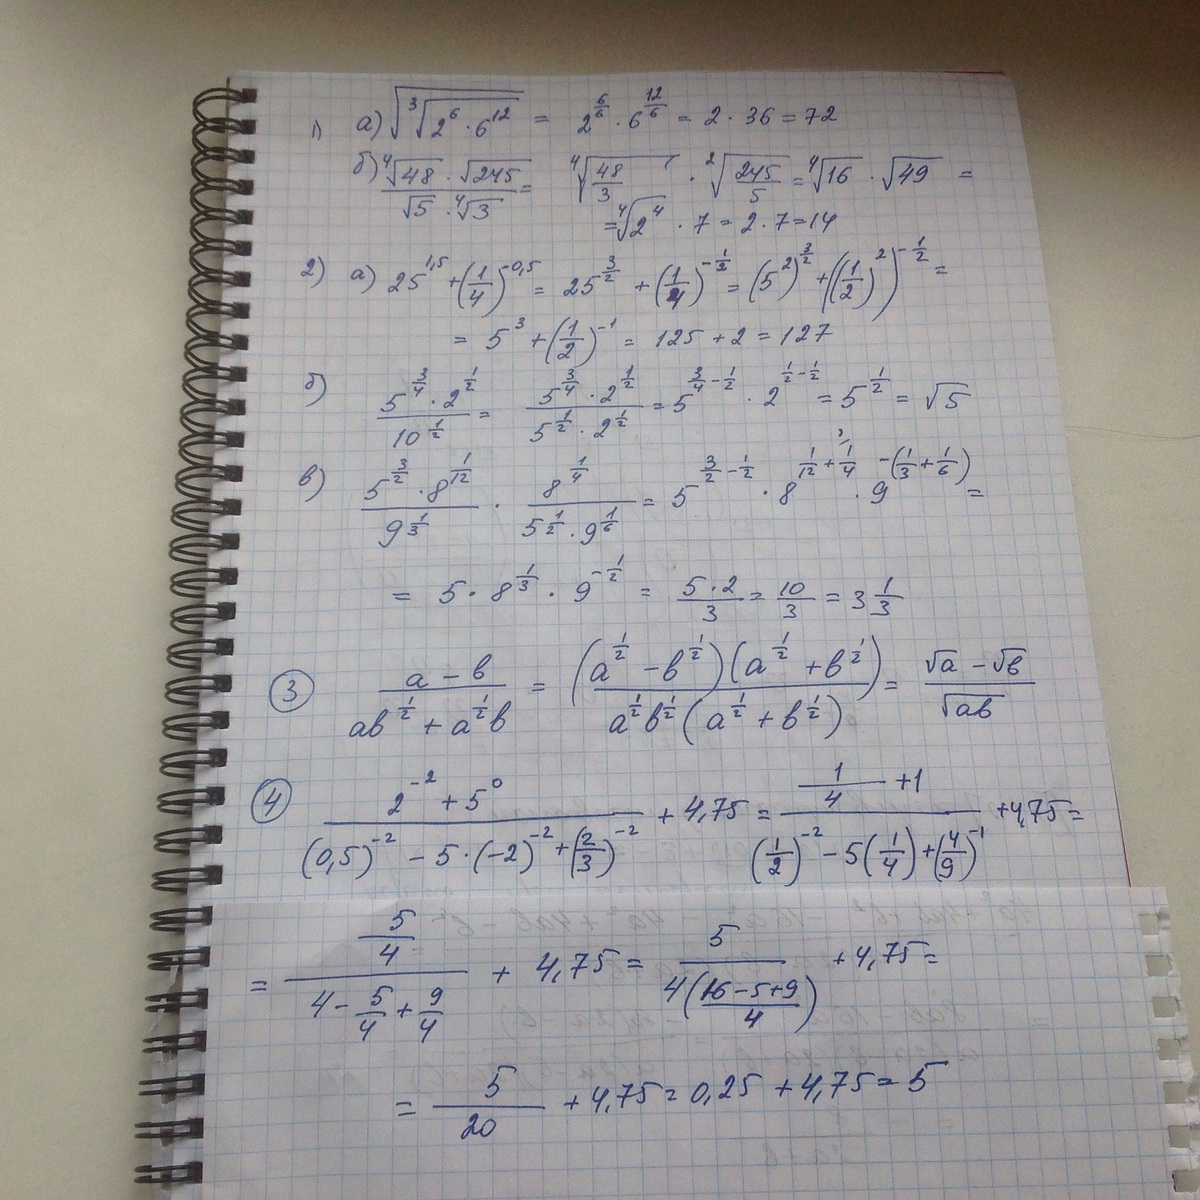 1) а) √(∛(2^6 · 6^12)) = 2^(6/6) · 6^(12/6) = 2 · 36 = 72
б) (⁴√48 · √245)/(√5 · ⁴√3) = ⁴√(48/3) · ²√(245/5) = ⁴√16 · √49 =
= ⁴√(2^4) · 7 = 2 · 7 = 14
2) а) 25^(1,5) + (1/4)^(-0,5) = 25^(3/2) + (1/4)^(-1/2) = (5^2)^(3/2) + ((1/2)^2)^(-1/2) =
= 5^3 + (1/2)^(-1) = 125 + 2 = 127
б) (5^(3/4) · 2^(1/2))/(10^(1/2)) = (5^(3/4) · 2^(1/2))/(5^(1/2) · 2^(1/2)) = 5^(3/4 - 1/2) · 2^(1/2 - 1/2) = 5^(1/2) = √5
в) (5^(3/2) · 8^(1/12))/(9^(1/3)) · (8^(1/4))/(5^(1/2) · 9^(1/6)) = 5^(3/2 - 1/2) · 8^(1/12 + 1/4) · 9^(-(1/3 + 1/6)) =
= 5 · 8^(1/3) · 9^(-1/2) = (5 · 2)/3 = 10/3 = 3 1/3
3 (a - b)/(ab^(1/2) + a^(1/2)b) = ((a^(1/2) - b^(1/2))(a^(1/2) + b^(1/2)))/(a^(1/2)b^(1/2)(a^(1/2) + b^(1/2))) = (√a - √b)/√ab
4 (2^(-2) + 5^0)/((0,5)^(-2) - 5 · (-2)^(-2) + (2/3)^(-2)) + 4,75 = (1/4 + 1)/((1/2)^(-2) - 5(1/4) + (4/9)^(-1)) + 4,75 =
= (5/4)/(4 - 5/4 + 9/4) + 4,75 = 5/(4((16 - 5 + 9)/4)) + 4,75 =
= 5/20 + 4,75 = 0,25 + 4,75 = 5